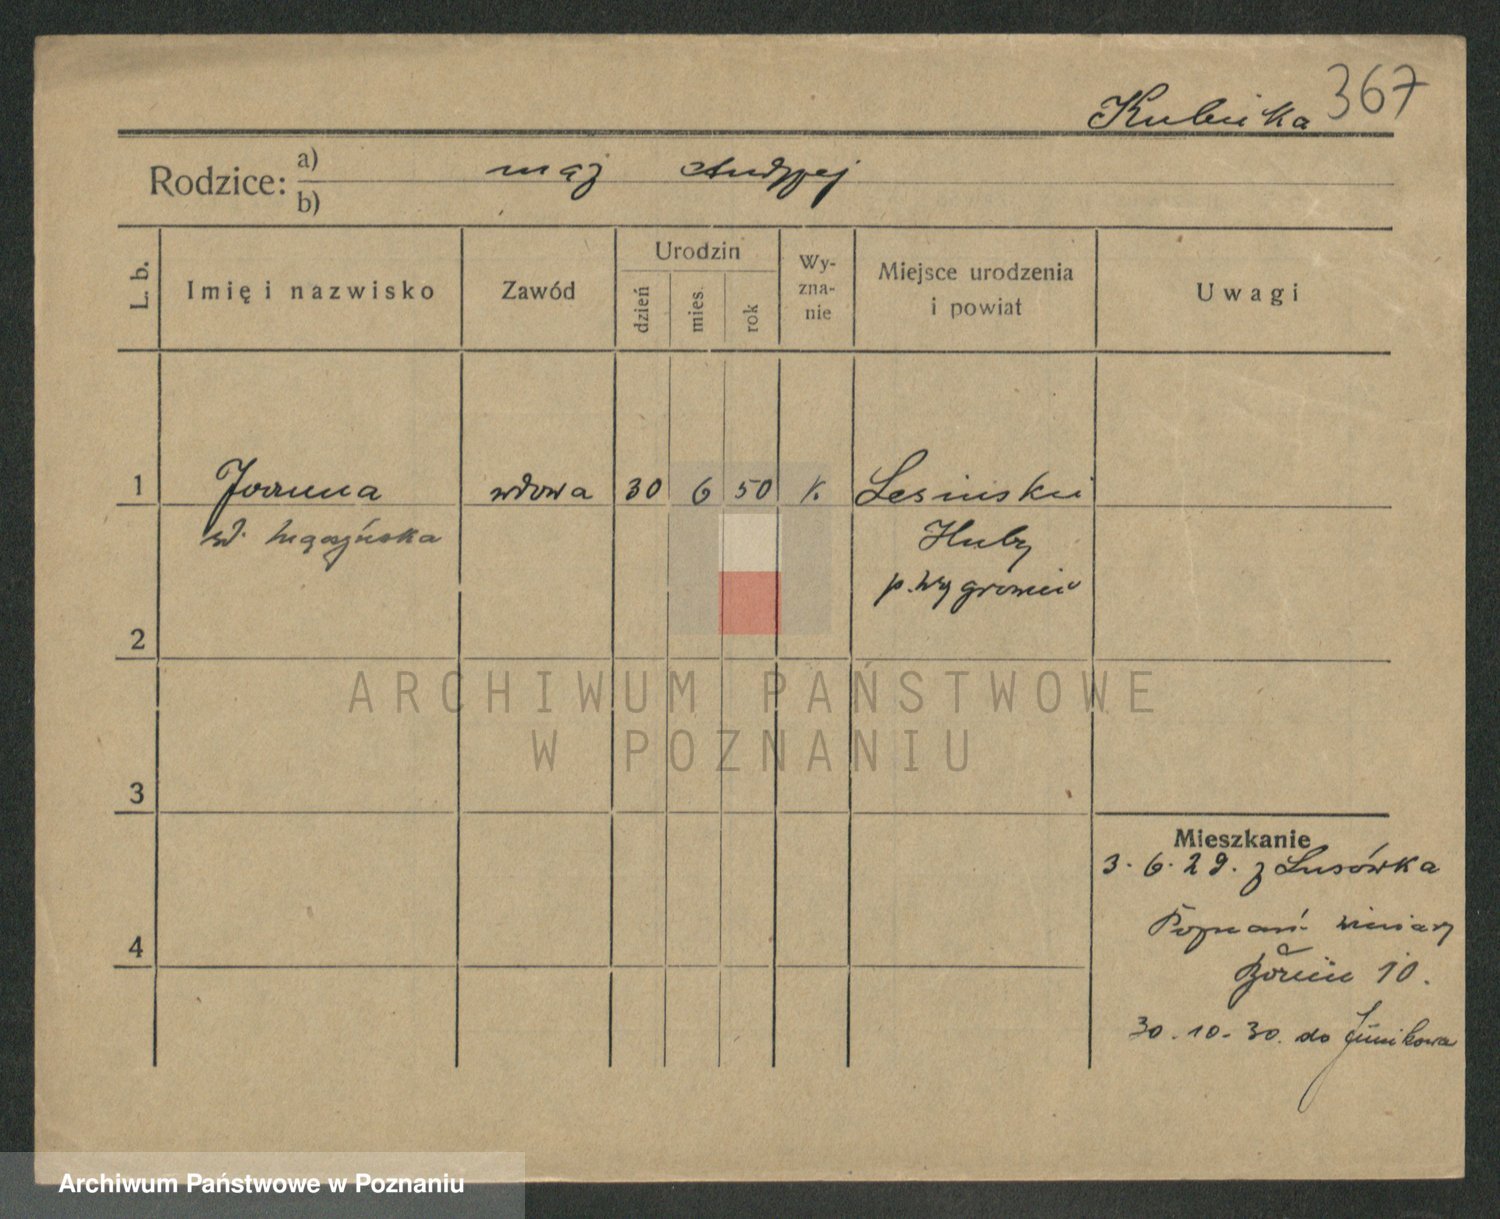 367
Kubicka
Rodzice: a) mąż Andrzej
b)
L. b.
Imię i nazwisko
Zawód
Urodzin
dzień
mies.
rok
Wy-
zna-
nie
Miejsce urodzenia
i powiat
Uwagi
1 Joanna wdowa 30 6 50 k. Lesinskie
Huby
2
3
4
Mieszkanie
3. 6. 29. z Lusówka
Poznań winiary
10.
30. 10. 30. do Junikowa
ARCHIWUM PAŃSTWOWE
W POZNANIU
Archiwum Państwowe w Poznaniu